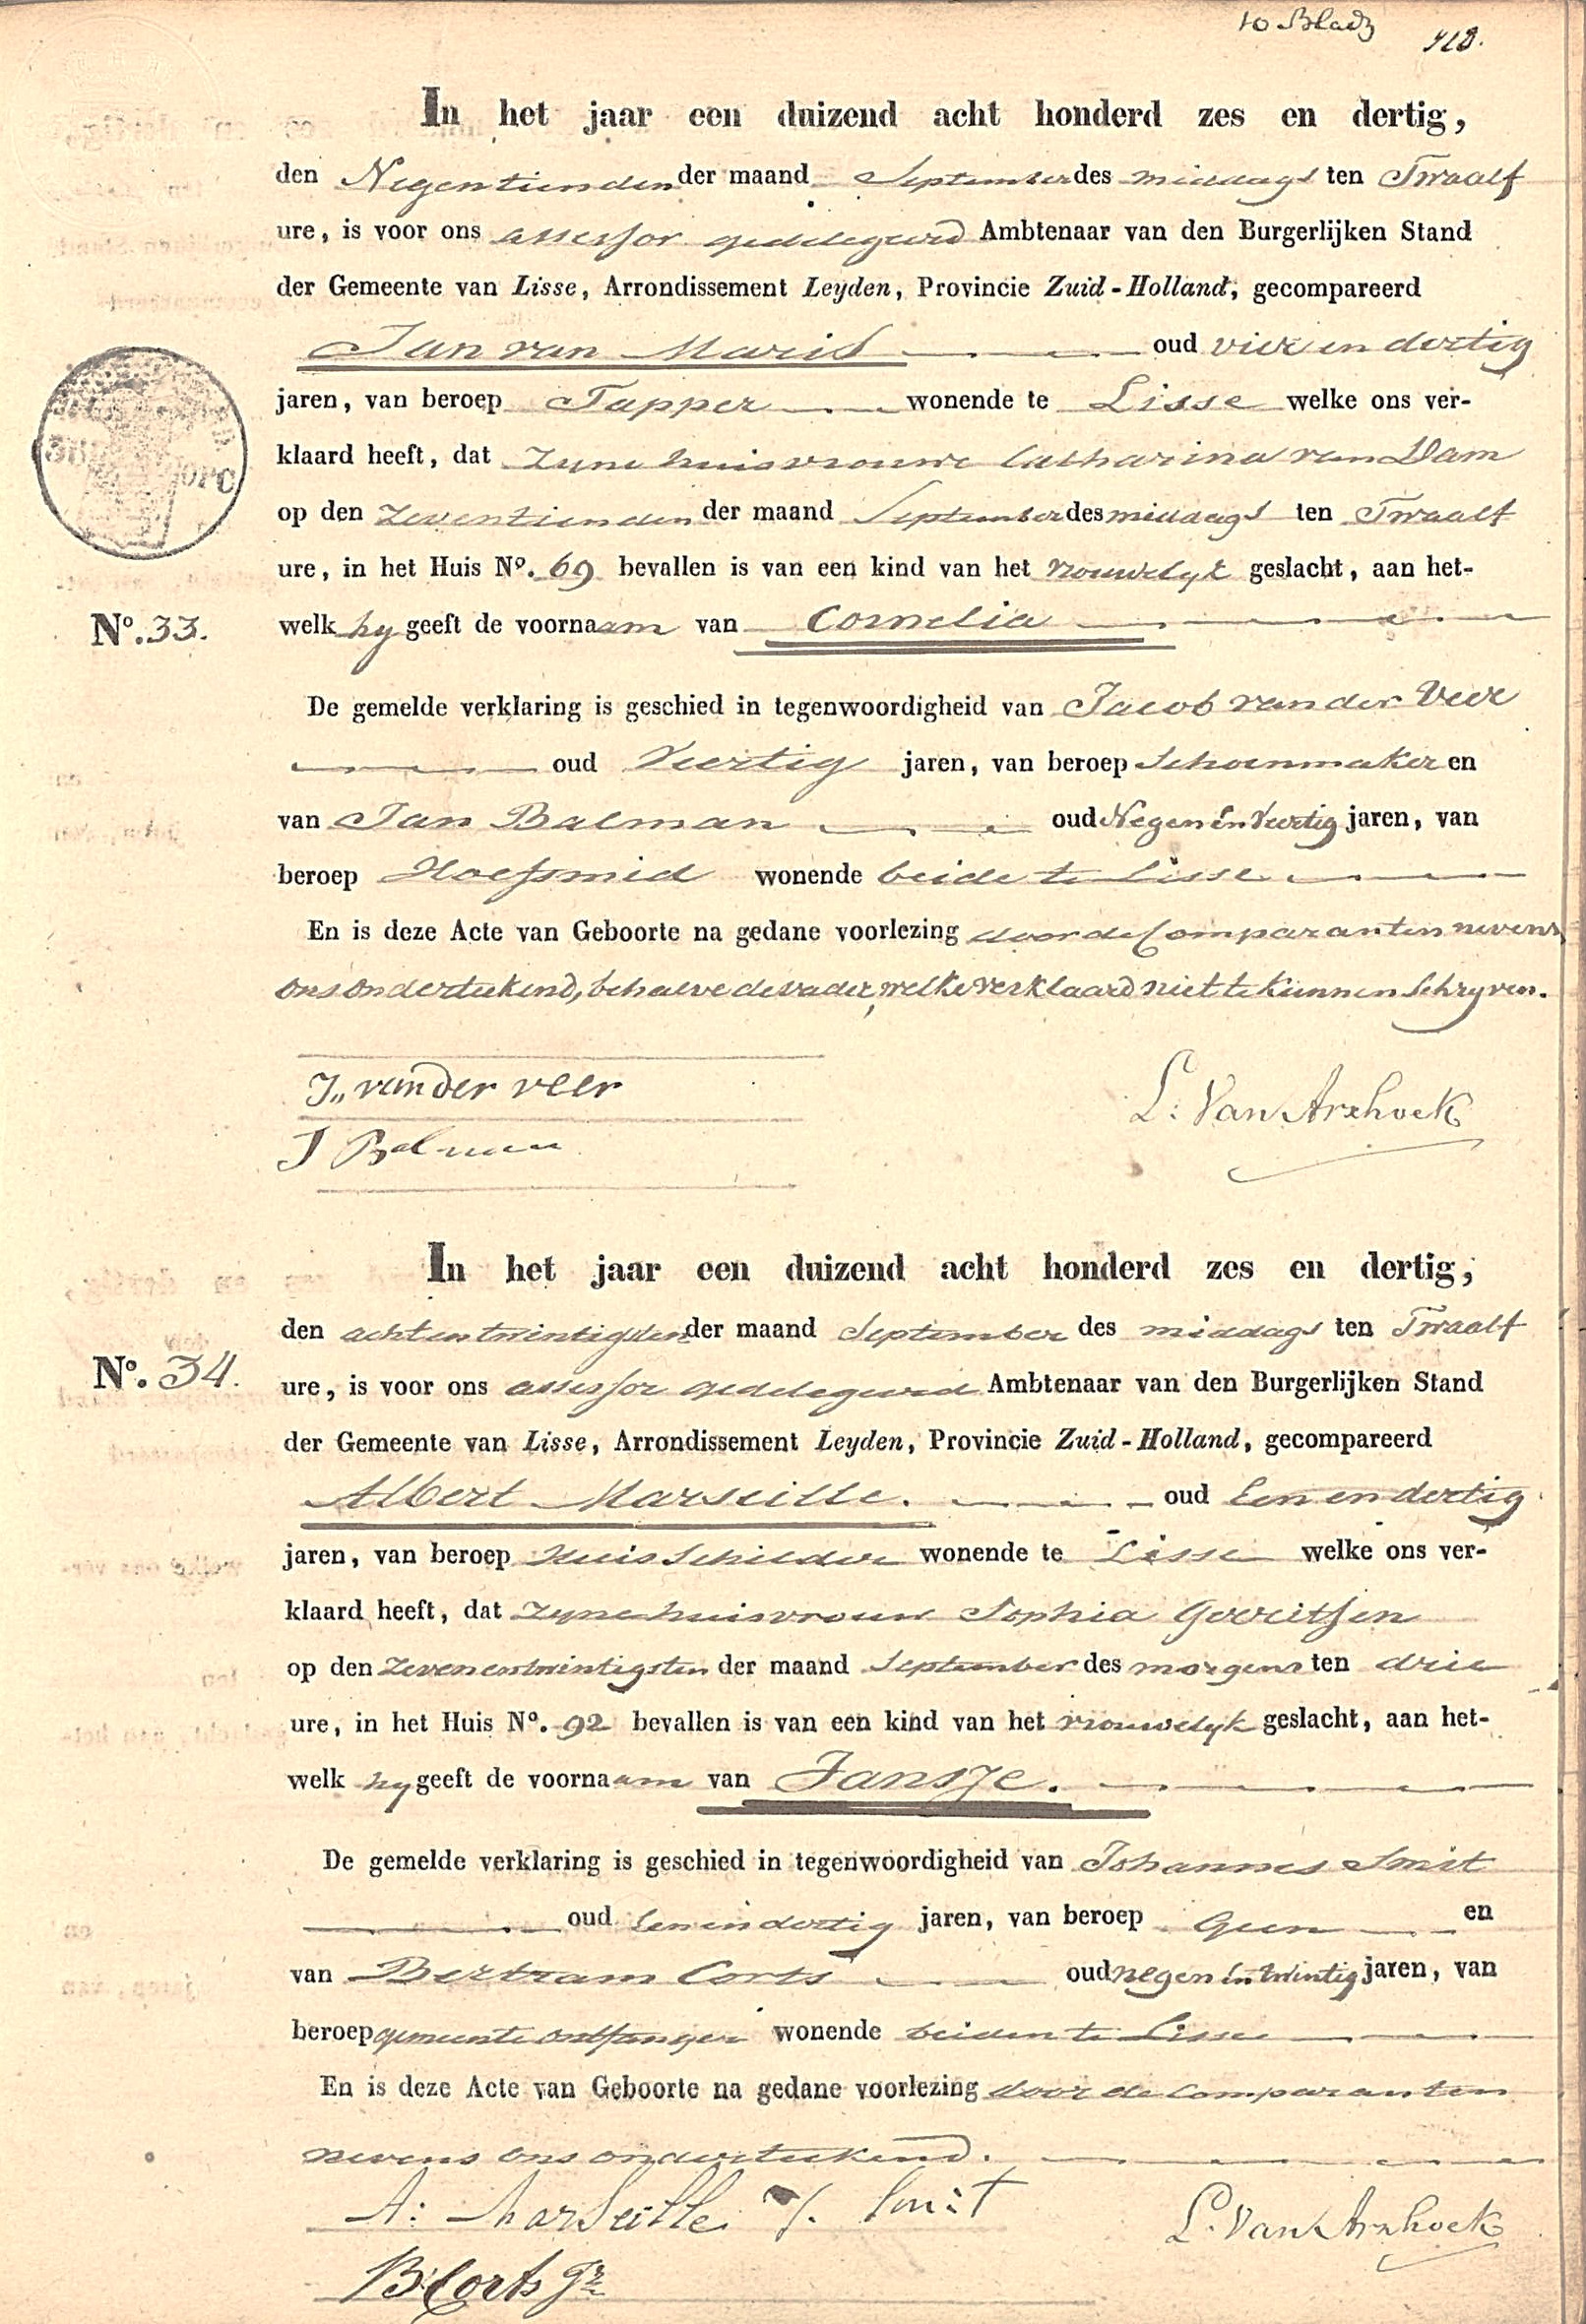 10 Bladz
In het jaar een duizend acht honderd zes en dertig,
den Negentienden der maand September des middags ten Twaalf
ure, is voor ons assessor gedelegeerd Ambtenaar van den Burgerlijken Stand
der Gemeente van Lisse, Arrondissement Leyden, Provincie Zuid-Holland, gecompareerd
Jan van Maris oud vier en dertig
jaren, van beroep Tapper wonende te Lisse welke ons ver-
klaard heeft, dat zyne huisvrouwe Catharina van Dam
op den Zeventienden der maand September des middags ten Twaalf
ure, in het Huis No. 69 bevallen is van een kind van het vrouwelyk geslacht, aan het-
No. 33. welk hy geeft de voornaam van Cornelia
De gemelde verklaring is geschied in tegenwoordigheid van Jacob van der Veer
oud Veertig jaren, van beroep Schoenmaker en
van Jan Balman oud Negen en Veertig jaren, van
beroep Hoefsmid wonende beide te Lisse
En is deze Acte van Geboorte na gedane voorlezing door de Comparanten nevens
ons onderteekend, behalve de vader, welke verklaard niet te kunnen Schryven.
J,, van der veer
J Balman
L. Van Arxhoek
In het jaar een duizend acht honderd zes en dertig,
den achtentwintigsten der maand September des middags ten Twaalf
No. 34. ure, is voor ons assessor gedelegeerd Ambtenaar van den Burgerlijken Stand
der Gemeente van Lisse, Arrondissement Leyden, Provincie Zuid-Holland, gecompareerd
Albert Marseille. oud Een en dertig
jaren, van beroep Huis Schilder wonende te Lisse welke ons ver-
klaard heeft, dat zyne huisvrouw Sophia Gerritsen
op den Zevenentwintigsten der maand September des morgens ten drie
ure, in het Huis No. 92 bevallen is van een kind van het vrouwelyk geslacht, aan het-
welk hy geeft de voornaam van Jansje.
De gemelde verklaring is geschied in tegenwoordigheid van Johannes Smit
oud Een en dertig jaren, van beroep Geen en
van Bertram Corts oud negen en twintig jaren, van
beroep gemeente ontfanger wonende beiden te Lisse
En is deze Acte van Geboorte na gedane voorlezing door de Comparanten
nevens ons onderteekend.
A: Marseille J. Smit
L. Van Arxhoek
B: Corts Jr